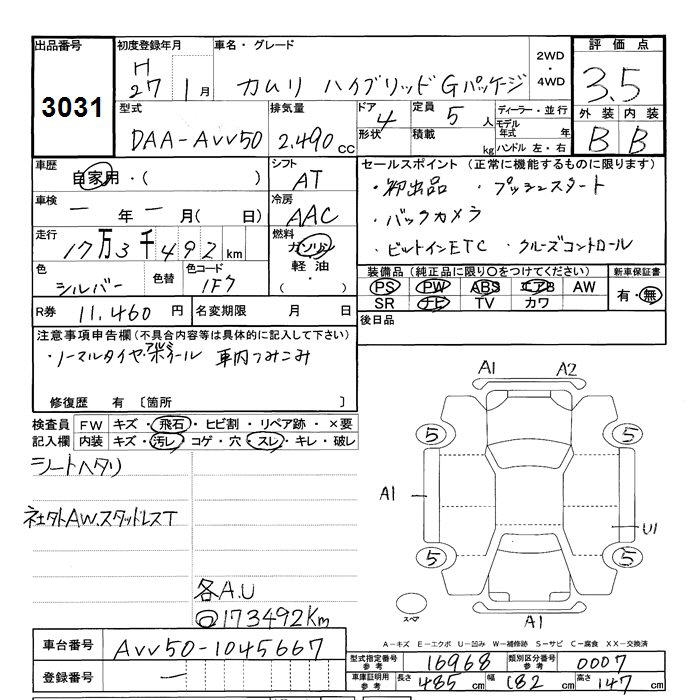 出品番号 3031
初度登録年月 H27 1月
車名・グレード カムリ ハイブリッドGパッケージ
2WD・4WD
評価点 3.5
外装 内装
B B
型式 DAA-AVV50
排気量 2.490 CC
ドア 4 形状
定員 5人 積載 kg
ディーラー・並行
モデル年式 年
ハンドル 左・右
車歴 自家用・( )
シフト AT
車検 ー年ー月( 日)
冷房 AAC
走行 17万3千492km
燃料 ガソリン 軽油・( )
色 シルバー 色替 色コード 1F7
R券 11.460円 名変期限 月 日
セールスポイント (正常に機能するものに限ります)
・初出品 ・プッシュスタート
・バックカメラ
・ビルトインETC ・クルーズコントロール
装備品(純正品に限り○をつけてください) 新車保証書
PS PW ABS エアB AW
SR ナビ TV カワ
有・無
後日品
注意事項申告欄(不具合内容等は具体的に記入して下さい)
・ノーマルタイヤ・アルミホイール 車内つみこみ
修復歴 有 〔箇所 〕
検査員記入欄
FW キズ・飛石・ヒビ割・リペア跡・×要
内装 キズ・汚レ・コゲ・穴・スレ・キレ・破レ
シートヘタリ
社外AW.スタッドレスT
各A.U
173492Km
A1 A2
5 5
A1 U1
5 5
スペア A1
A-キズ E-エクボ U-凹み W-補修跡 S-サビ C-腐食 XX-交換済
車台番号 AVV50-1045667
登録番号 ー
型式指定番号 参考 16968 類別区分番号 参考 0007
車庫証明用 参考 長さ 485cm 幅 182cm 高さ 147cm